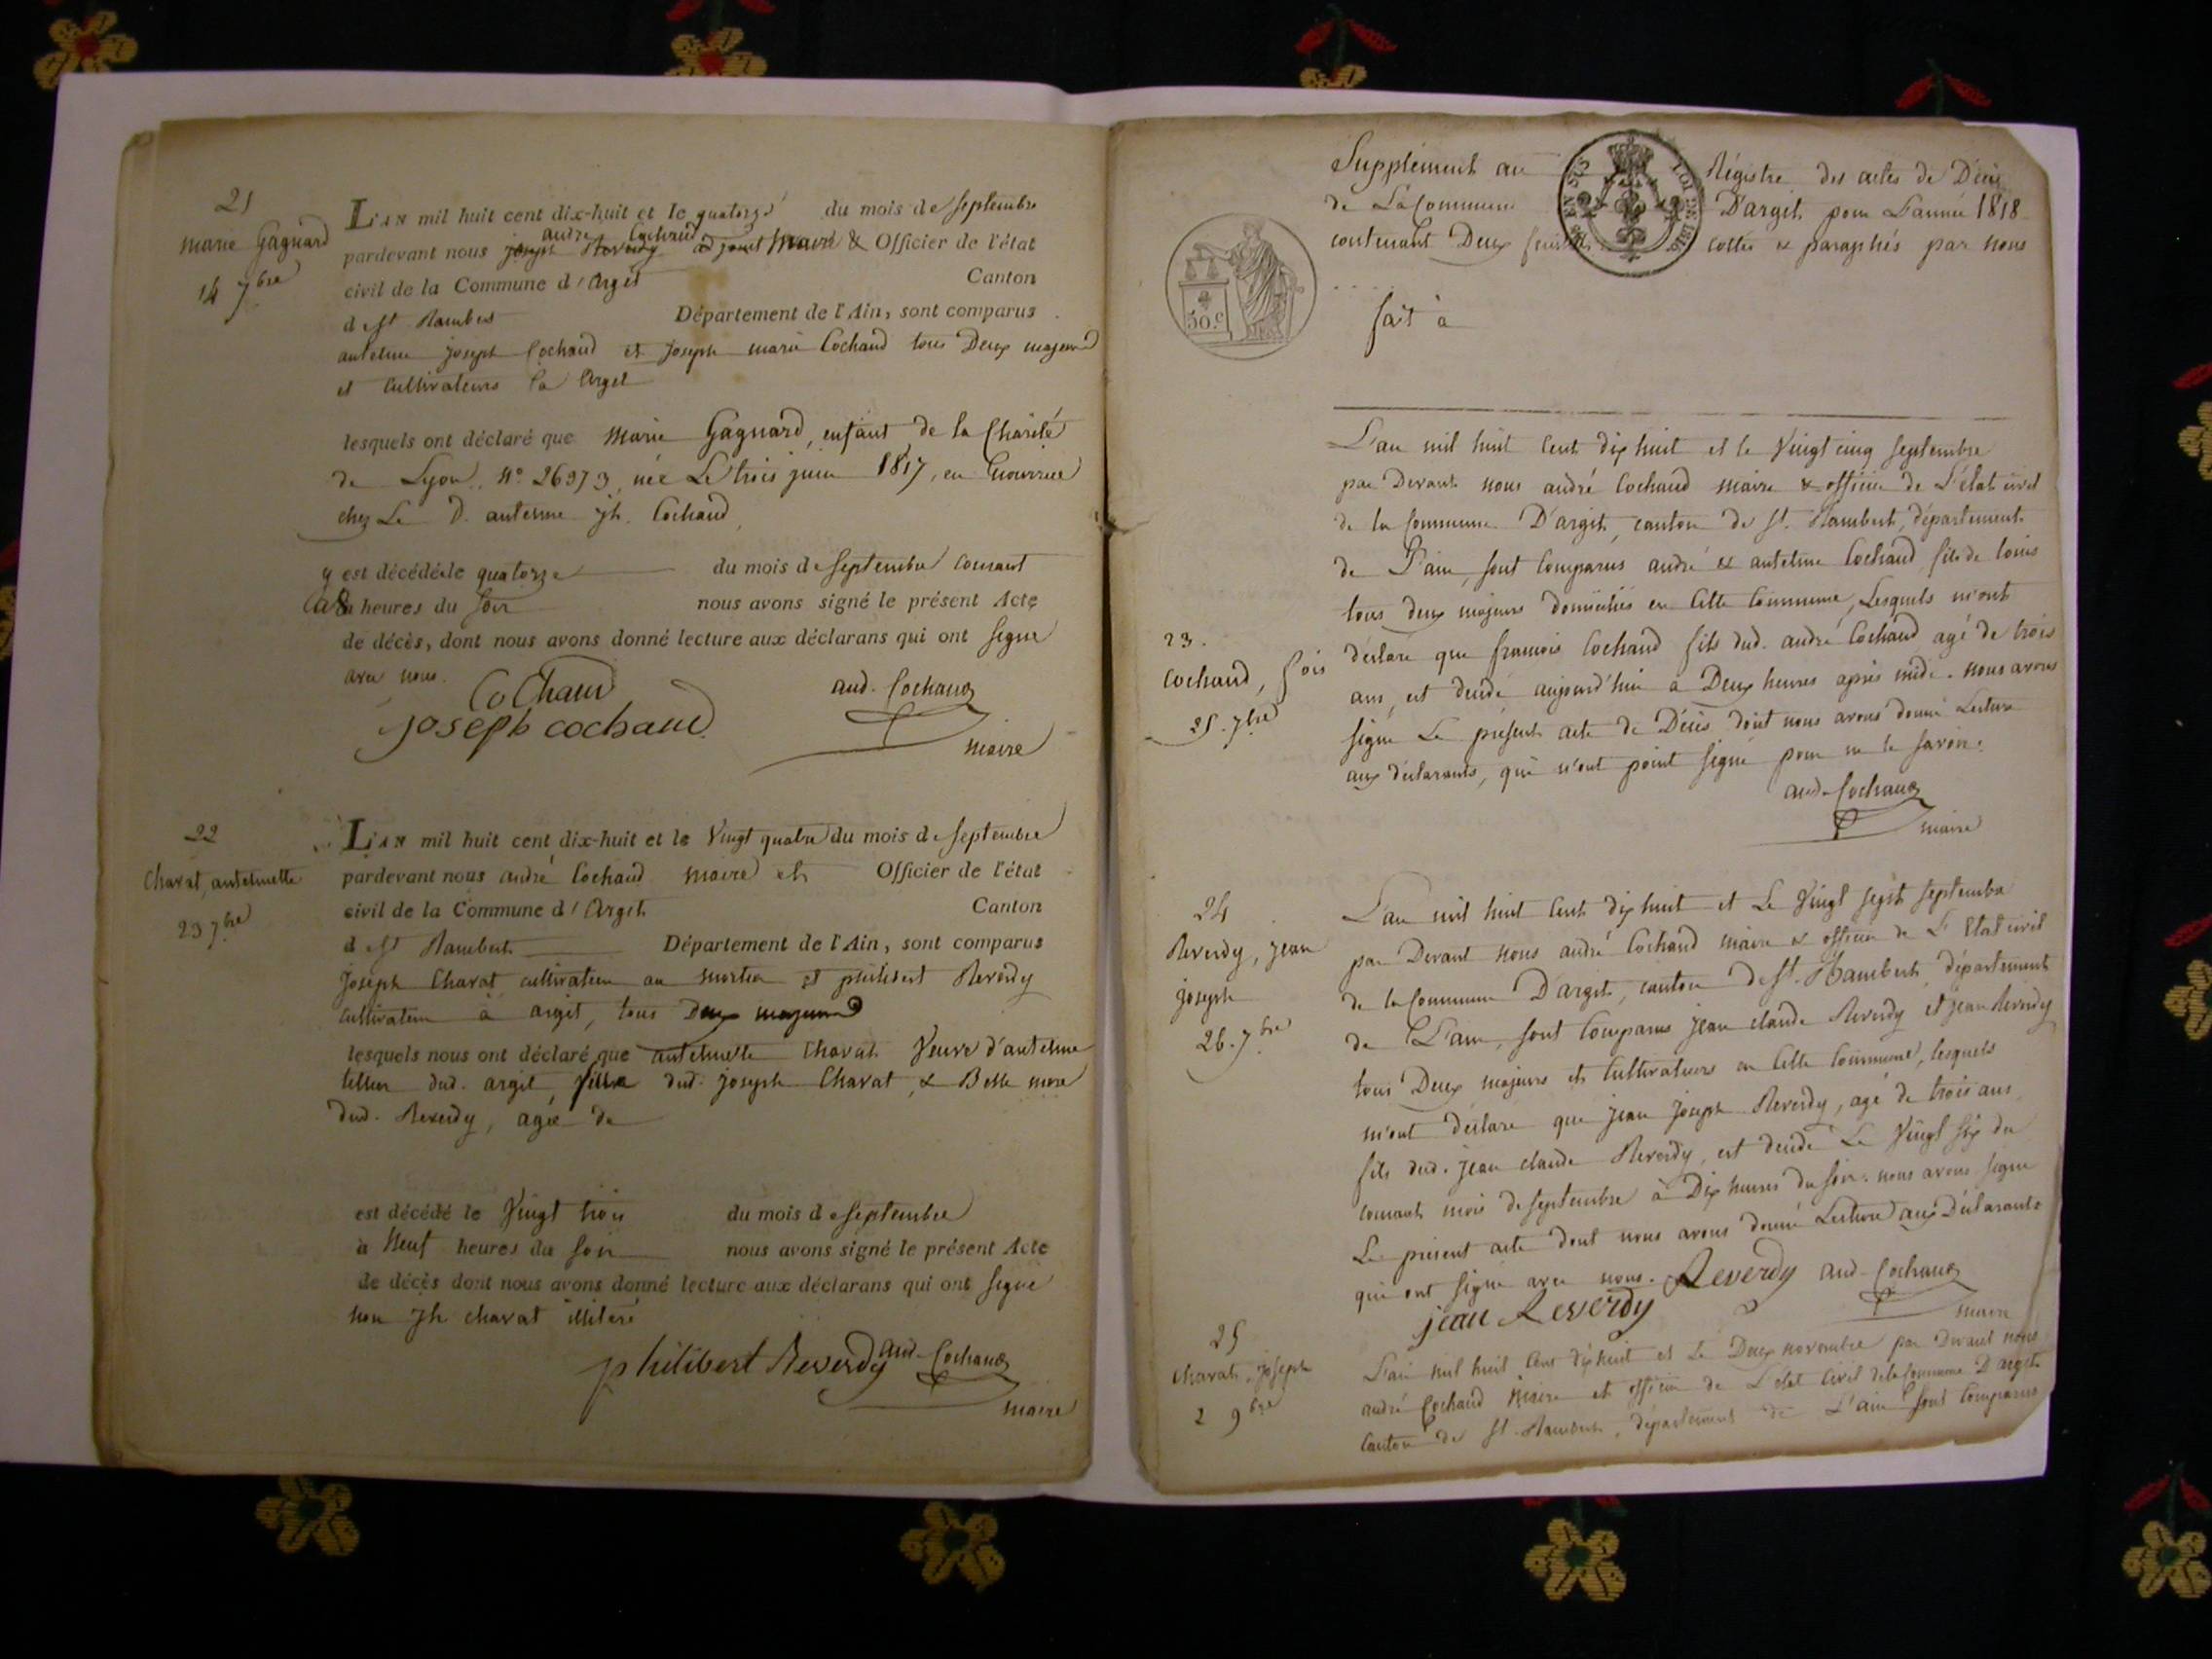 21
marie Gagnard
14 7bre
L'AN mil huit cent dix-huit et le quatorze du mois de septembre
andré Cochaud
pardevant nous joseph Reverdy adjoint maire & Officier de l'état
civil de la Commune d'Argit Canton
de St Rambert Département de l'Ain, sont comparus
antelme joseph Cochaud et joseph marie Cochaud tous Deux majeurs
et cultivateurs à Argit
lesquels ont déclaré que Marie Gagnard, enfant de la Charité
de Lyon, N° 26973, née Le trois juin 1817, en nourrice
chez Le D. antelme jh. Cochaud,
y est décédé le quatorze du mois de septembre courant
à 8 heures du soir nous avons signé le présent Acte
de décès, dont nous avons donné lecture aux déclarans qui ont signé
avec nous.
Cochaud
joseph cochaud
and. Cochaud
maire
22
Charat, antelmette
23 7bre
L'AN mil huit cent dix-huit et le Vingt quatre du mois de septembre
pardevant nous andré Cochaud maire et Officier de l'état
civil de la Commune d'Argit Canton
de St Rambert Département de l'Ain, sont comparus
Joseph Charat cultivateur au mortier et philibert Reverdy
cultivateur à argit, tous Deux majeurs
lesquels nous ont déclaré que antelmette Charat Veuve d'antelme
tellier dud. argit, fille dud. joseph Charat, & Belle mere
dud. Reverdy, agée de
est décédé le Vingt trois du mois de septembre
à Neuf heures du soir nous avons signé le présent Acte
de décès dont nous avons donné lecture aux déclarans qui ont signé
non jh charat illitéré
philibert Reverdy and. Cochaud
maire
Supplément au Régistre des actes de Décès
de La Commune D'argit pour L'année 1818
contenant Deux feuillets cottés & paraphés par nous
50 c.
LOI DE 1816
fait à
L'an mil huit cent dix huit et le Vingt cinq septembre
par Devant nous andré Cochaud maire & officier de L'état civil
de la Commune D'argit, canton de St. Rambert, département
de L'ain, sont comparus andré & antelme Cochaud, fils de louis
tous deux majeurs domiciliés en cette commune, Lesquels m'ont
23.
Cochaud, fois
25. 7bre
déclaré que francois Cochaud fils dud. andré Cochaud agé de trois
ans, est décédé aujourd'hui à Deux heures après midi. nous avons
signé Le présent acte de Décès dont nous avons donné Lecture
aux déclarants, qui n'ont point signé pour ne le savoir.
and. Cochaud
maire
24
Reverdy, jean
joseph
26. 7bre
L'an mil huit cent dix huit et Le Vingt sept septembre
par Devant nous andré Cochaud maire & officier de L'Etat civil
de la Commune D'argit, canton de St. Rambert, département
de L'ain, sont comparus jean claude Reverdy et jean Reverdy
tous Deux majeurs et cultivateurs en cette commune, lesquels
m'ont déclaré que jean joseph Reverdy, agé de trois ans,
fils dud. jean claude Reverdy, est décédé Le Vingt six du
courant mois de septembre à Dix heures du soir. nous avons signé
Le présent acte dont nous avons donné Lecture aux Déclarants
qui ont signé avec nous. Reverdy and. Cochaud
jean Reverdy maire
25
Charat, joseph
2 9bre
L'an mil huit cent dix huit et Le Deux novembre par devant nous
andré Cochaud Maire et officier de L'état civil de la commune D'argit
canton de St. Rambert, département de L'ain sont comparus